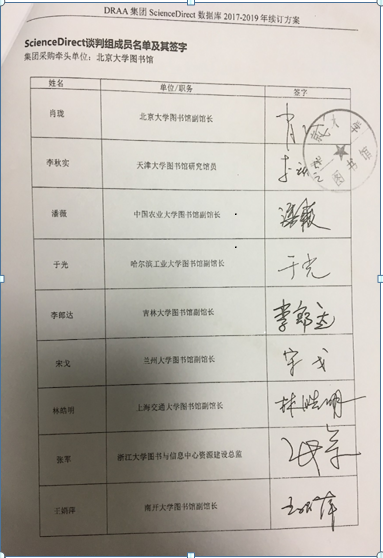 DRAA 集团 ScienceDirect 数据库 2017-2019 年续订方案
ScienceDirect谈判组成员名单及其签字
集团采购牵头单位：北京大学图书馆
姓名 单位/职务 签字
肖珑 北京大学图书馆副馆长
李秋实 天津大学图书馆研究馆员
潘薇 中国农业大学图书馆副馆长 潘薇
于光 哈尔滨工业大学图书馆副馆长 于光
李郎达 吉林大学图书馆副馆长 李郎达
宋戈 兰州大学图书馆副馆长 宋戈
林皓明 上海交通大学图书馆副馆长 林皓明
张军 浙江大学图书与信息中心资源建设总监 张军
南开大学图书馆副馆长